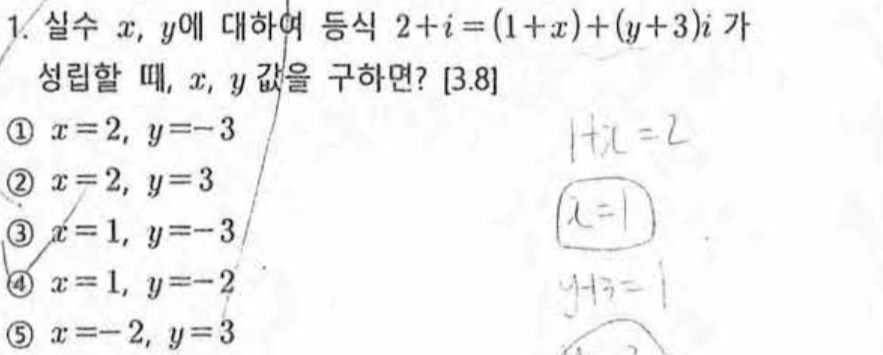 1. 실수 x, y에 대하여 등식 2+i=(1+x)+(y+3)i 가
성립할 때, x, y 값을 구하면? [3.8]
① x=2, y=-3
② x=2, y=3
③ x=1, y=-3
④ x=1, y=-2
⑤ x=-2, y=3
1+x=2
x=1
y+3=1